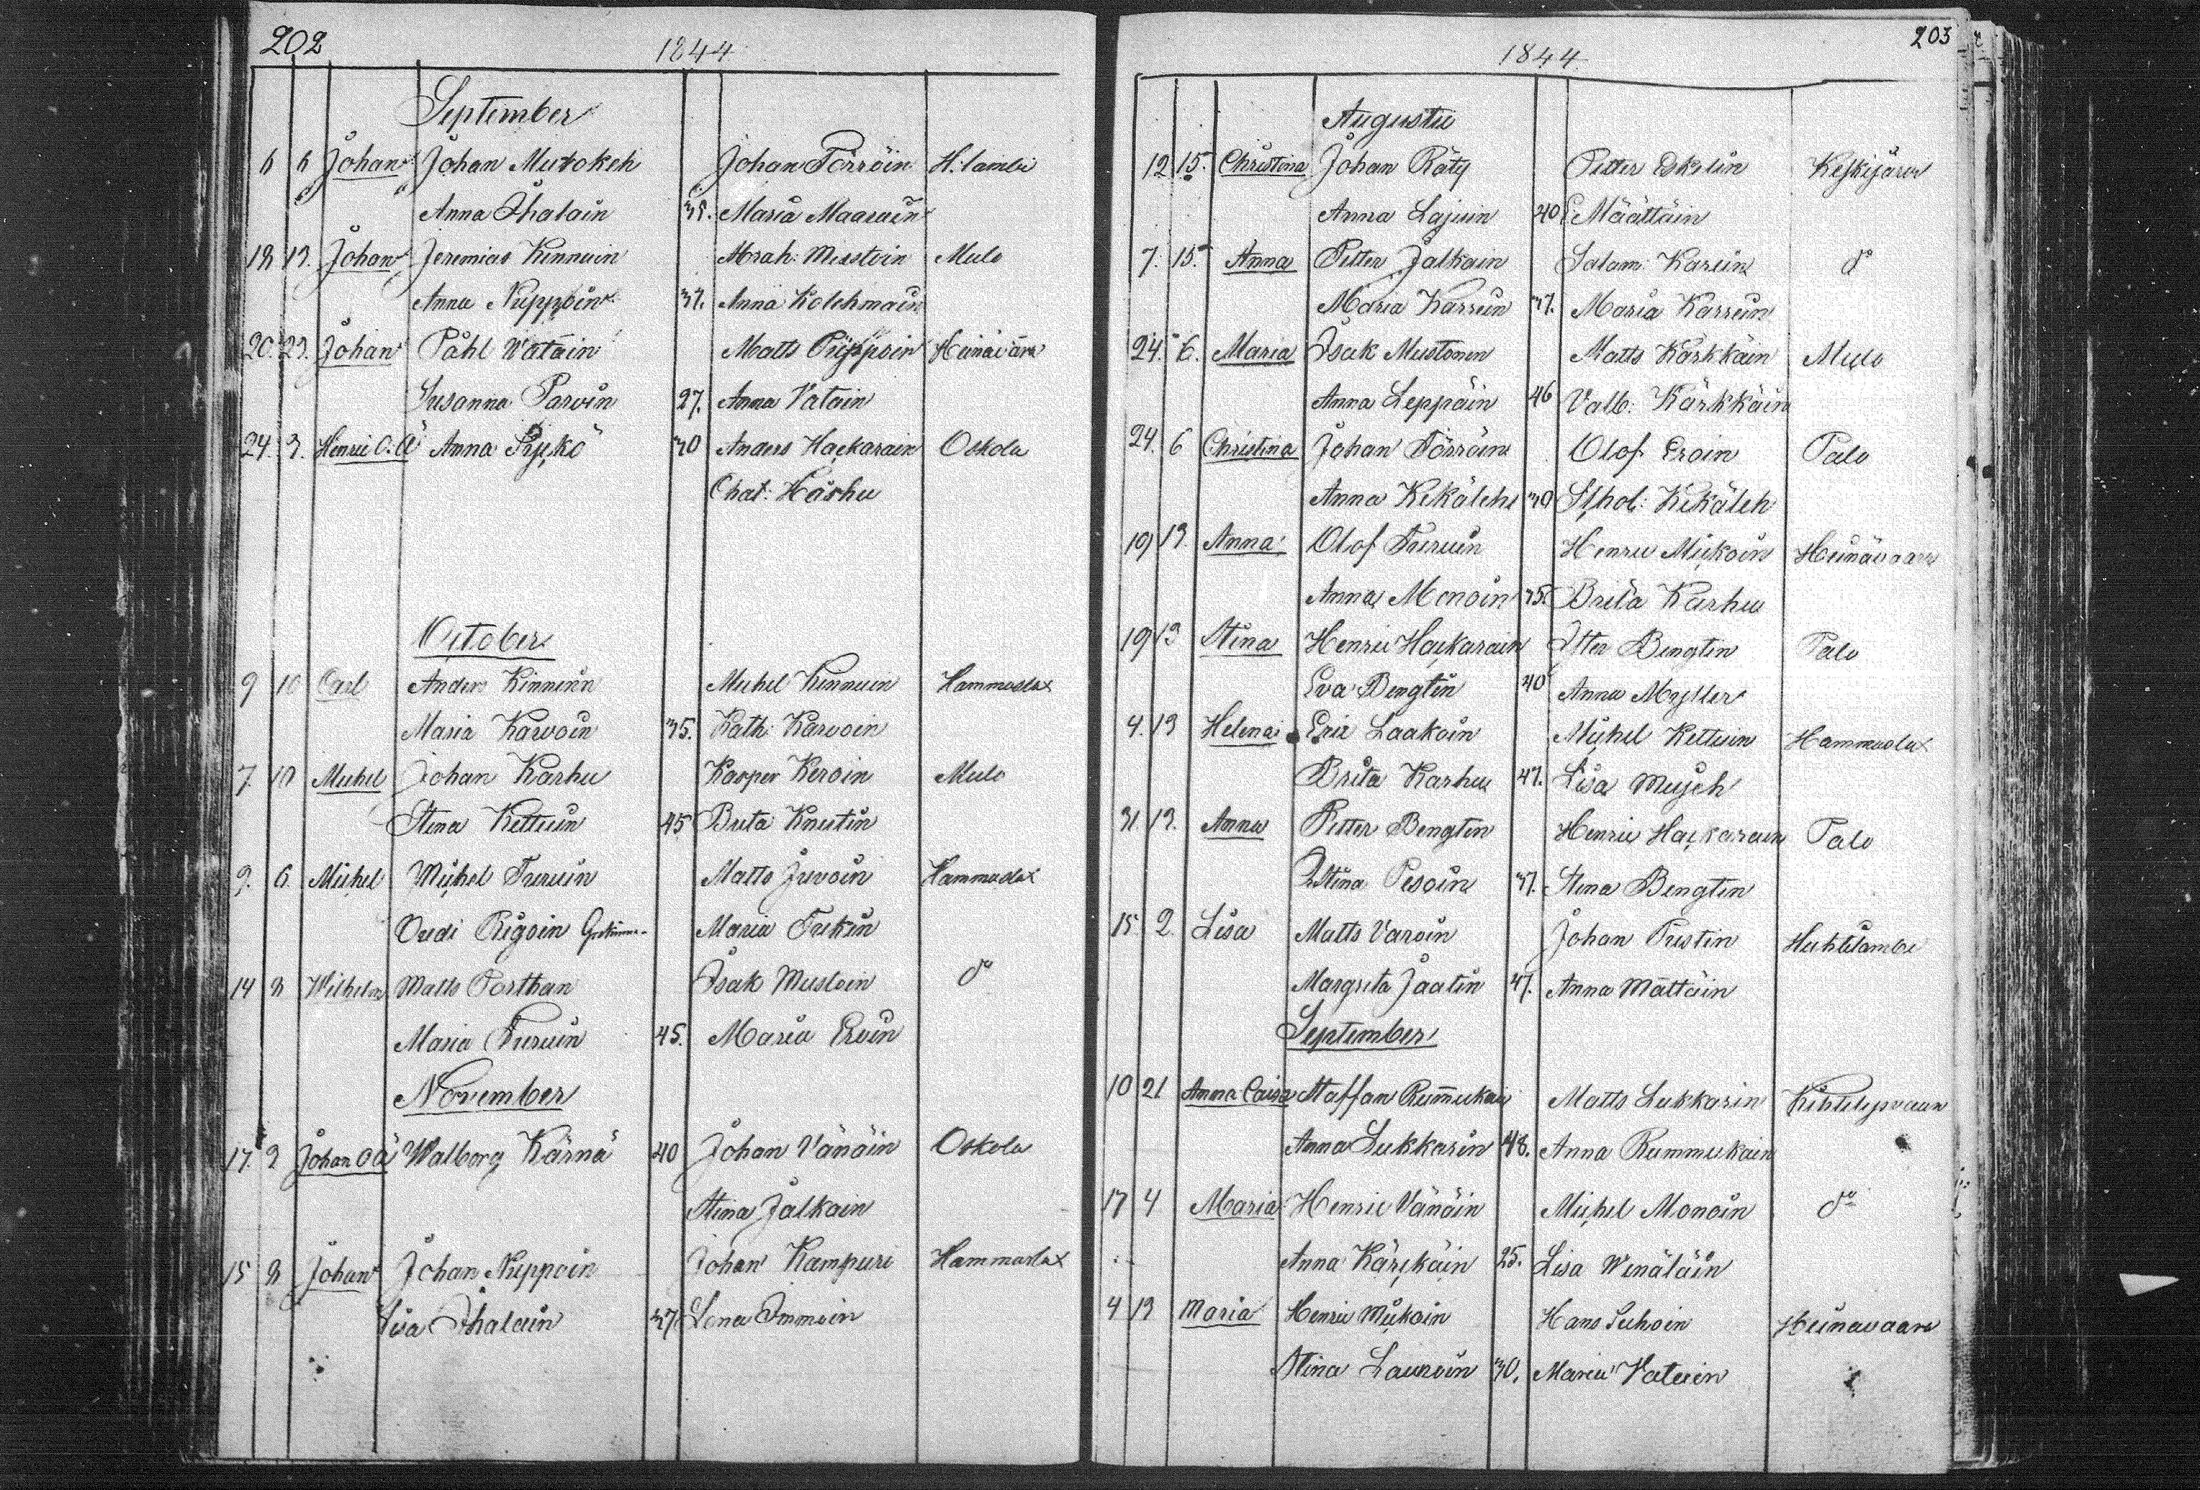 202
1844
September
6 6 Johan Johan Mutokeh Johan Törröin H:lambi
Anna Ihalain 35. Maria Maaruin
18 19. Johan Jeremias Kinnuin Abrah: Mustoin Mulo
Anna Nuppoin 37. Anna Kolehmain
20. 23. Johan Påhl Watain Matts Piippoin Heinävara
Susanna Parvin 27. Anna Vatain
24. 3. Henric O.Ä Anna Sykö 30 Anders Hackarain Oskola
Chat: Harhu
October
9 10 Carl Anders Kinnunn Michel Kinnuin Hammaslax
Maria Karvoin 35. Kath: Karvoin
7. 10 Michel Johan Karhu Kasper Keroin Mulo
Stina Kettuin 45 Brita Knutin
9. 6 Michel Michel Turuin Matts Juvoin Hammaslax
Oudi Rigoin Maria Turkin
14 8 Wilhelm Matts Porthan Isak Mustoin do
Maria Turuin 45. Maria Eroin
November
17. 2 Johan OÄ Walborg Kärnä 40 Johan Vänäin Oskola
Stina Jalkain
15 8 Johan Johan Nuppoin Johan Kampuri Hammaslax
Lisa Ihalain 37 Lena Immoin
203
1844
Augustu
12 15. Christina Johan Räty Petter Eskelin Keskijärvi
Anna Lajuin 40 E Määttäin
7. 15. Anna Petter Jalkain Salam: Karuin do
Maria Karruin 37. Maria Karruin
24. 6. Maria Isak Mustonen Matts Kärkkäin Mulo
Anna Leppäin 46 Valb: Kärkkäin
24. 6 Christina Johan Törröin Olof Eroin Palo
Anna Kekäleh 30 Kekäleh
19 13 Anna Olof Turuin Henric Mickoin Heinävaara
Anna Monoin 35 Brita Karhu
19 13 Stina Henric Hackarain Petter Bengten Palo
Eva Bengten 40 Anna Myller
4. 13 Helena Eric Laakoin Michel Kettuin Hammaslax
Brita Karhu 47. Lisa Mujeh
31. 13. Anna Petter Bengten Henric Hackarain Palo
Stina Pesoin 37. Stina Bengten
15 2. Lisa Matts Varoin Johan Pustin Huhtilambi
Margreta Jaatin 47. Anna Mättäin
September
10 21 Anna Caisa Staffan Rummukain Matts Lukkarin Kihtelysvaara
Anna Lukkarin 48. Anna Rummukain
17 4 Maria Henric Vänäin Michel Monoin do
Anna Kärckäin 25. Lisa Winäläin
4 13 Maria Henric Mickoin Hans Suhoin Heinävaara
Stina Lauroin 30. Maria Vatain